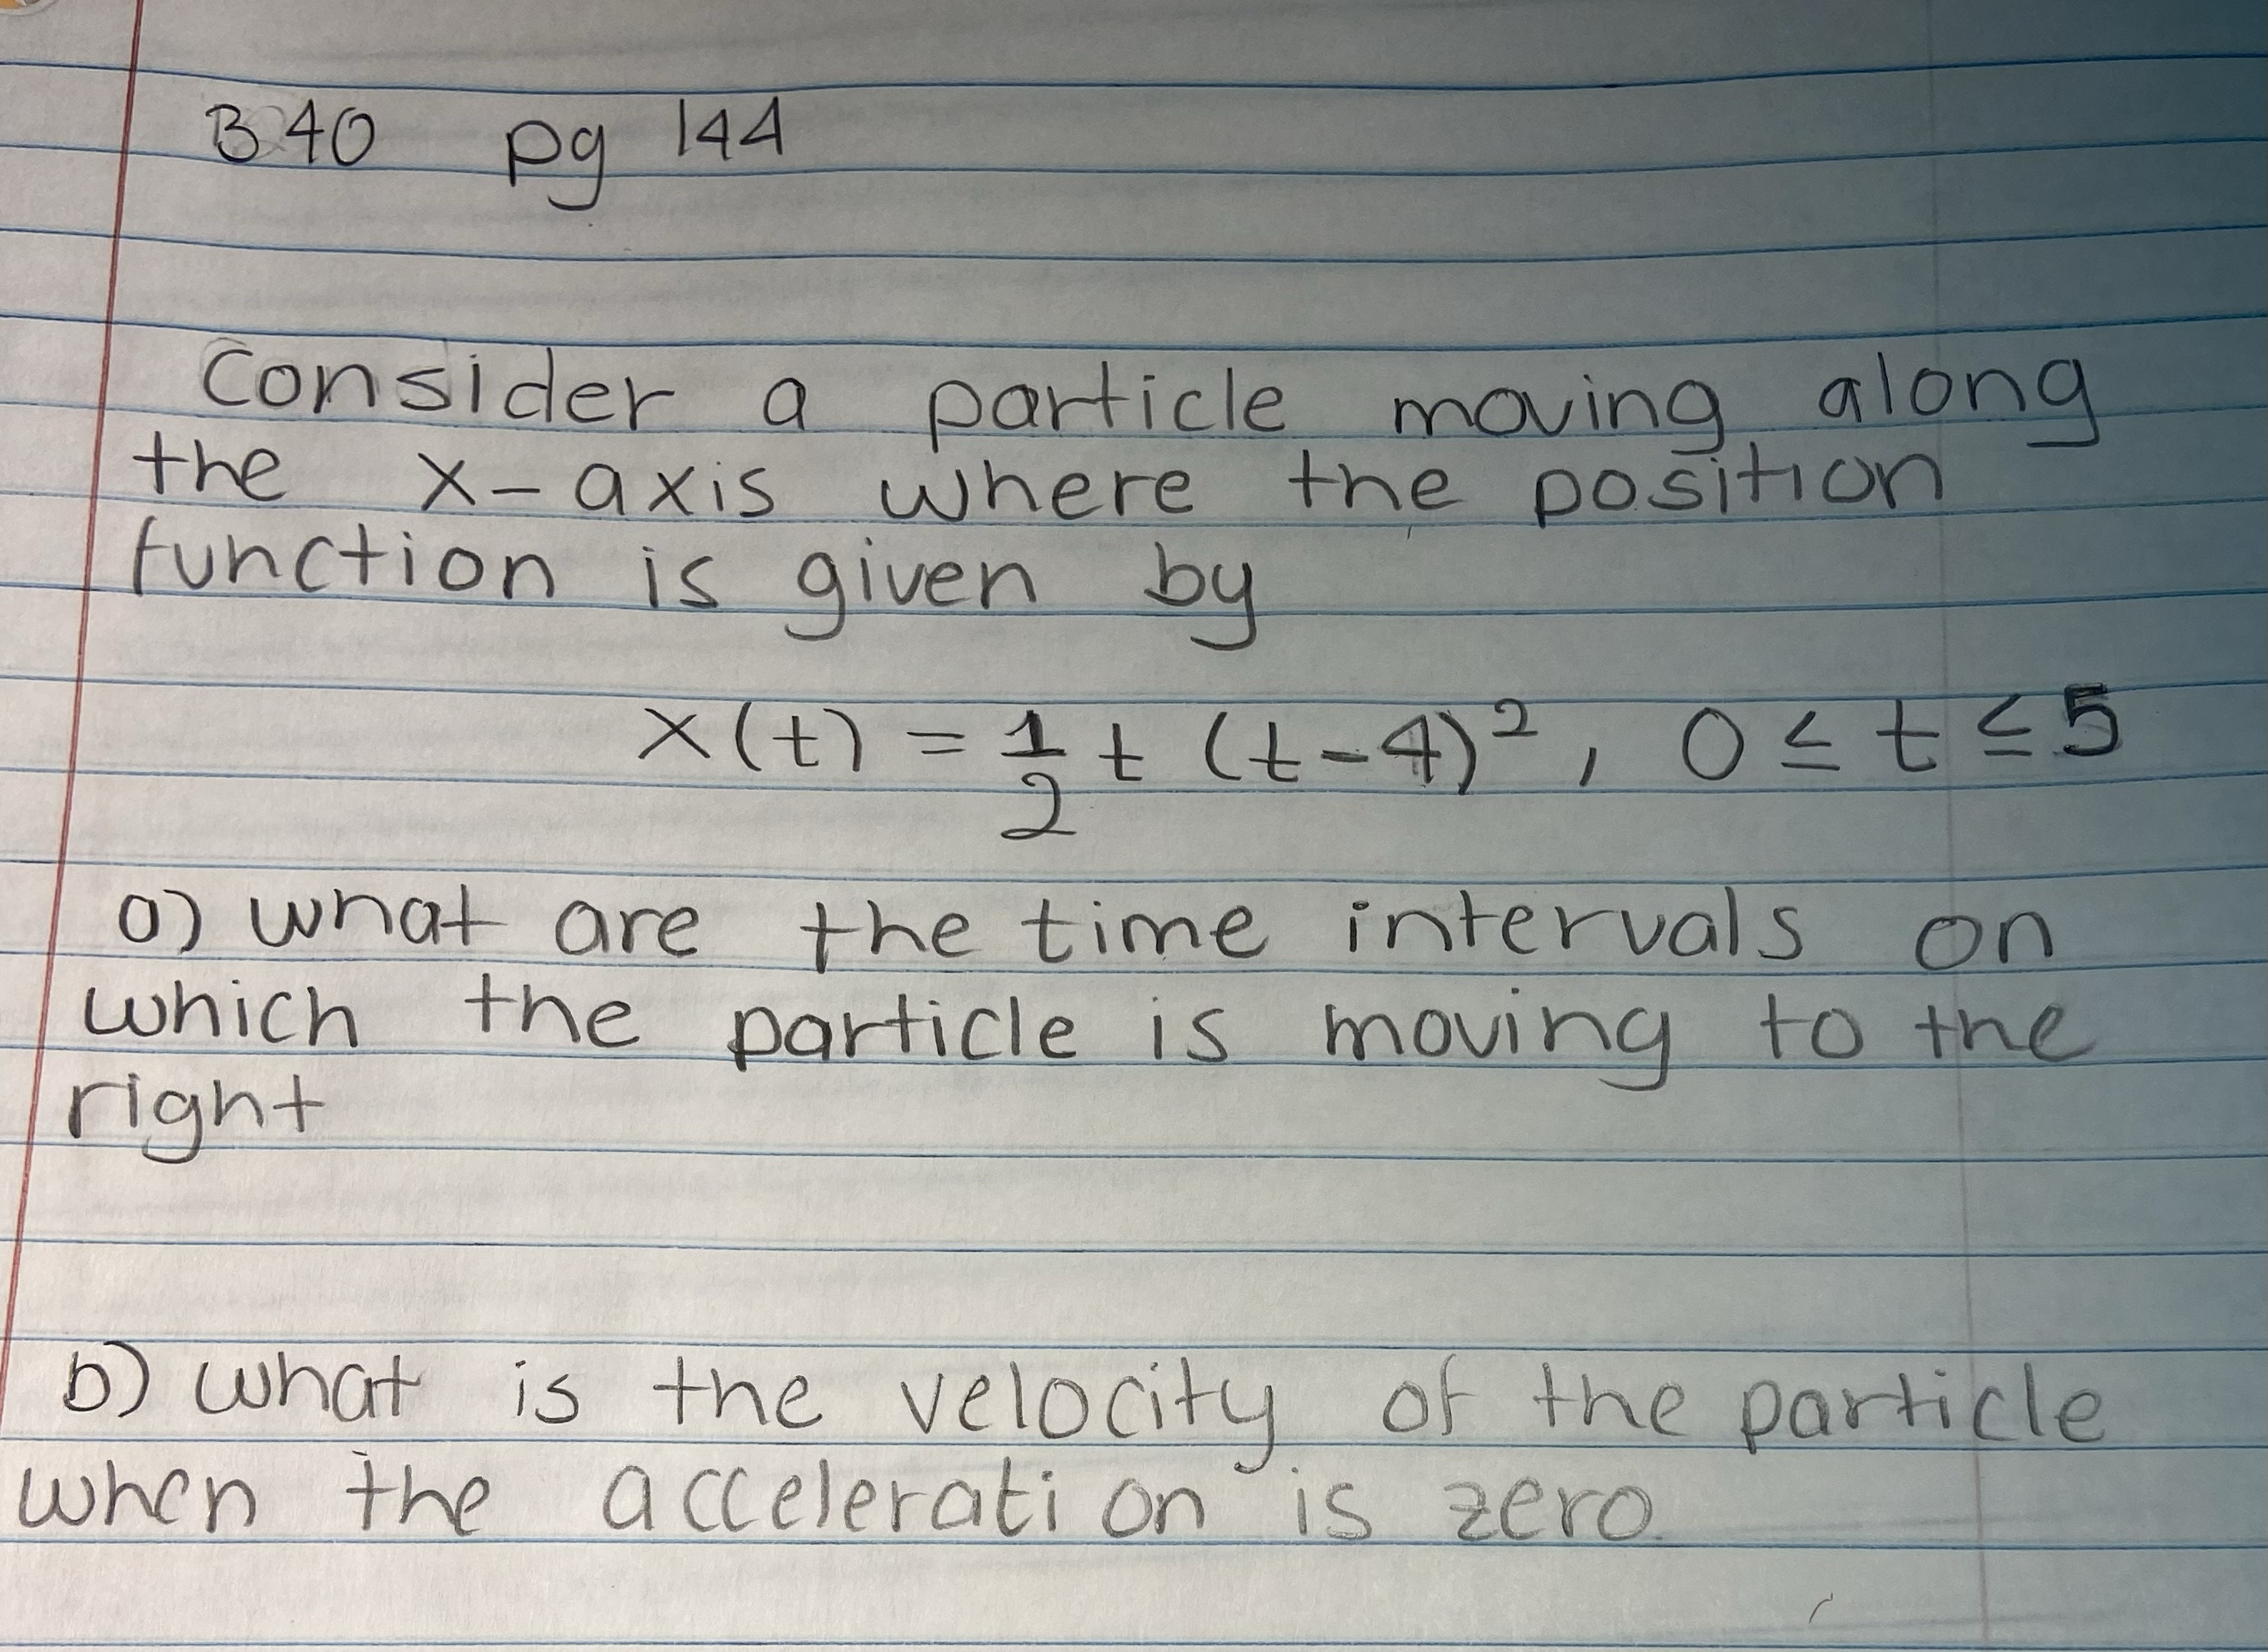 B40 pg 144
Consider a particle moving along
the x-axis where the position
function is given by
x(t) = 1/2 t (t-4)², 0 ≤ t ≤ 5
a) what are the time intervals on
which the particle is moving to the
right
b) what is the velocity of the particle
when the acceleration is zero.